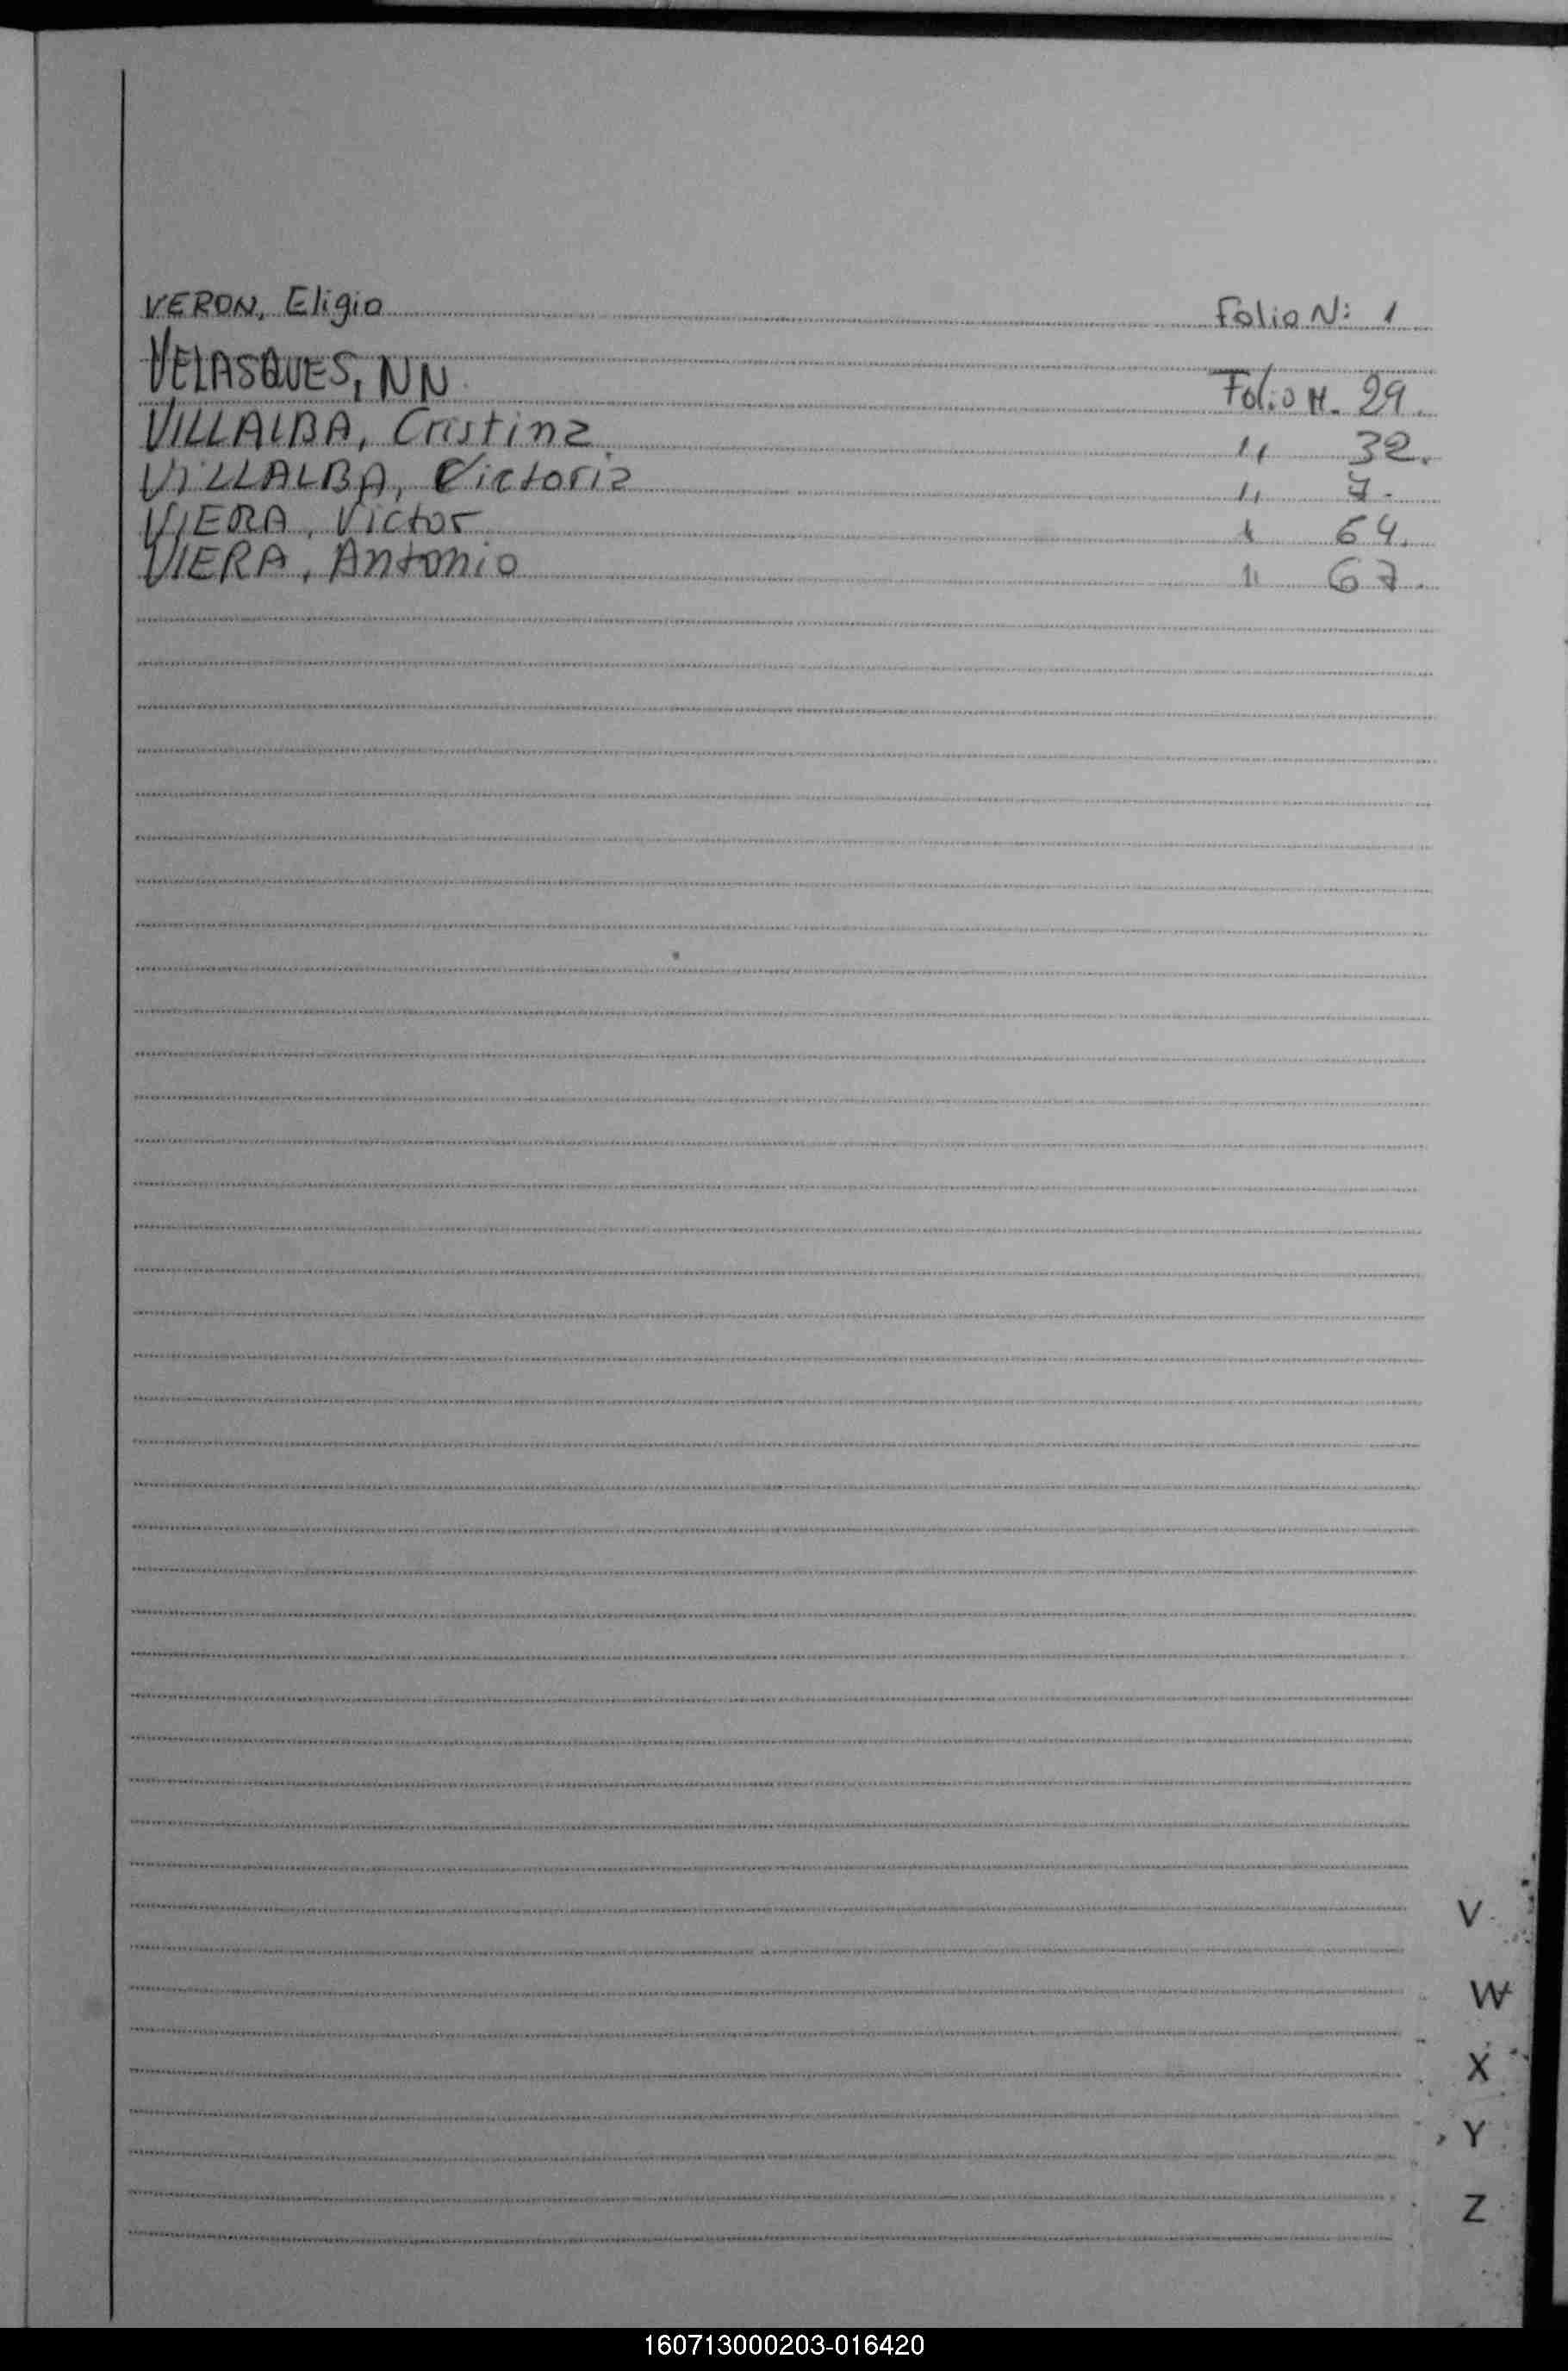 VERON, Eligio Folio N: 1
VELASQUES, NN. Folio N. 29.
VILLALBA, Cristina 11 32.
VILLALBA, Victoria 11 7.
VIERA, Victor 64.
VIERA, Antonio 11 67.
V
W
X
Y
Z
160713000203-016420